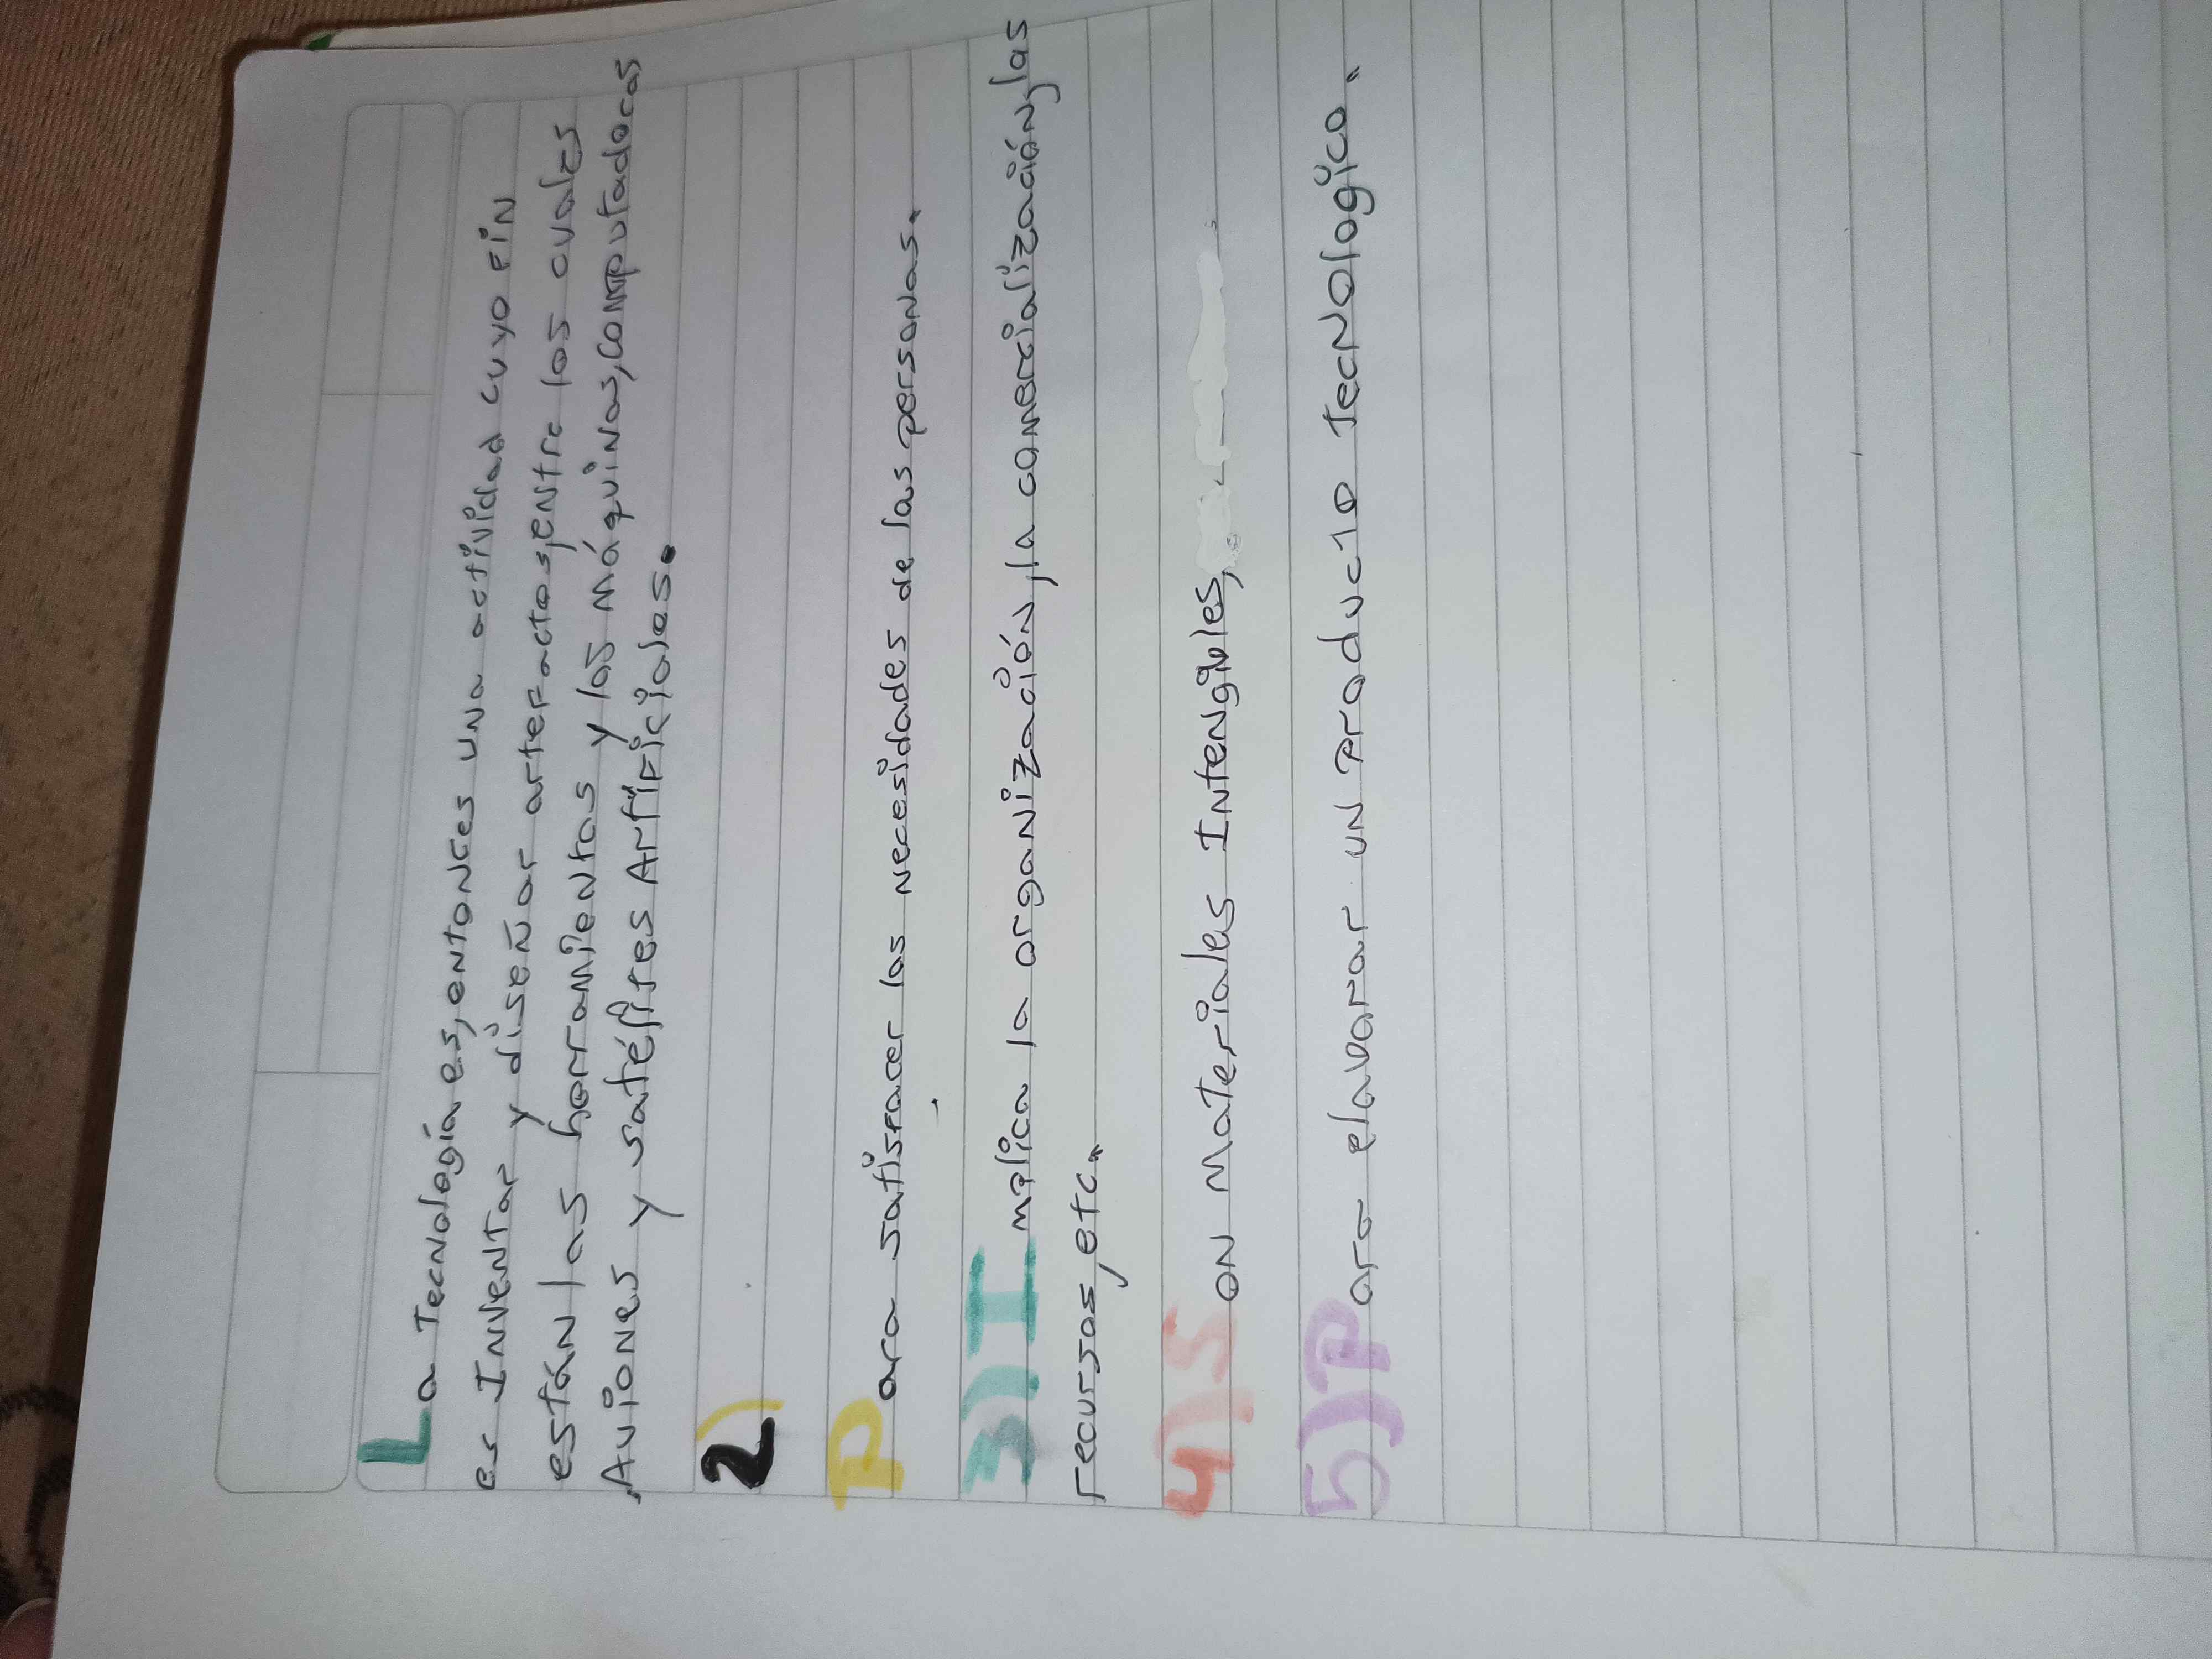 La Tecnología es, entonces una actividad cuyo fin
es Inventar y diseñar artefactos, entre los cuales
están las herramientas y las máquinas, computadoras
, Aviones y satélites Artificiales.
2)
Para satisfacer las necesidades de las personas.
3) Implica la organización, la comercialización, las
recursos, etc.
4) Son Materiales Intengibles,
5) Para elavorar un Producto Tecnologico.